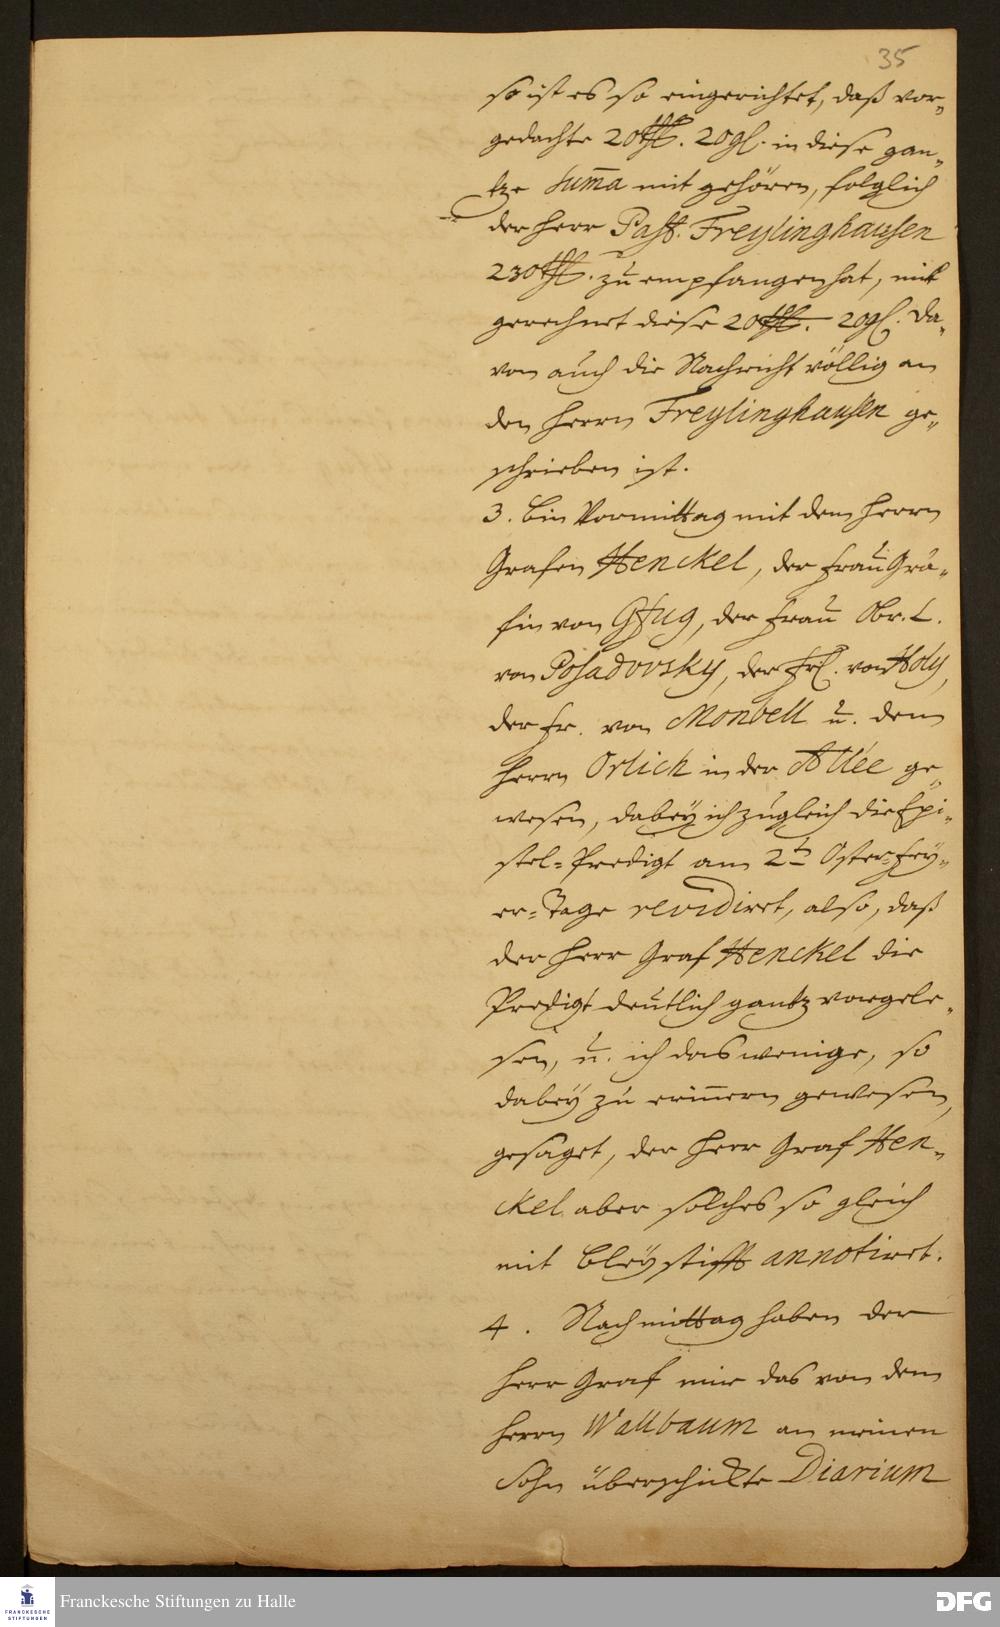 35
so ist es so eingerichtet, daß vor-
gedachte 20 thl. 20 gl. in diese gan-
tze Summa mit gehören, folglich
der Herr Past. Freylinghausen
230 thl. zu empfangen hat, mit
gerechnet diese 20 thl. 20 gl. Da-
von auch die Nachricht völlig an
den Herrn Freylinghausen ge-
schrieben ist.
3. Bin Vormittag mit dem Herrn
Grafen Henckel, der Frau Grä-
fin von Gfug, der Frau Obr. L.
von Posadovsky, der Frl. von Holy,
der Fr. von Monbell u. dem
Herrn Orlich in der Allée ge-
wesen, dabey ich zugleich die Epi-
stel-Predigt am 2ten Oster-Fey-
er-Tage revidiret, also, daß
der Herr Graf Henckel die
Predigt deutlich gantz vorgele-
sen, u. ich das wenige, so
dabey zu erinnern gewesen,
gesaget, der Herr Graf Hen-
ckel aber solches so gleich
mit Bleystifft annotiret.
4. Nachmittag haben der
Herr Graf mir das von dem
Herrn Wallbaum an meinen
Sohn überschickte Diarium
Franckesche Stiftungen zu Halle
FRANCKESCHE
STIFTUNGEN
DFG